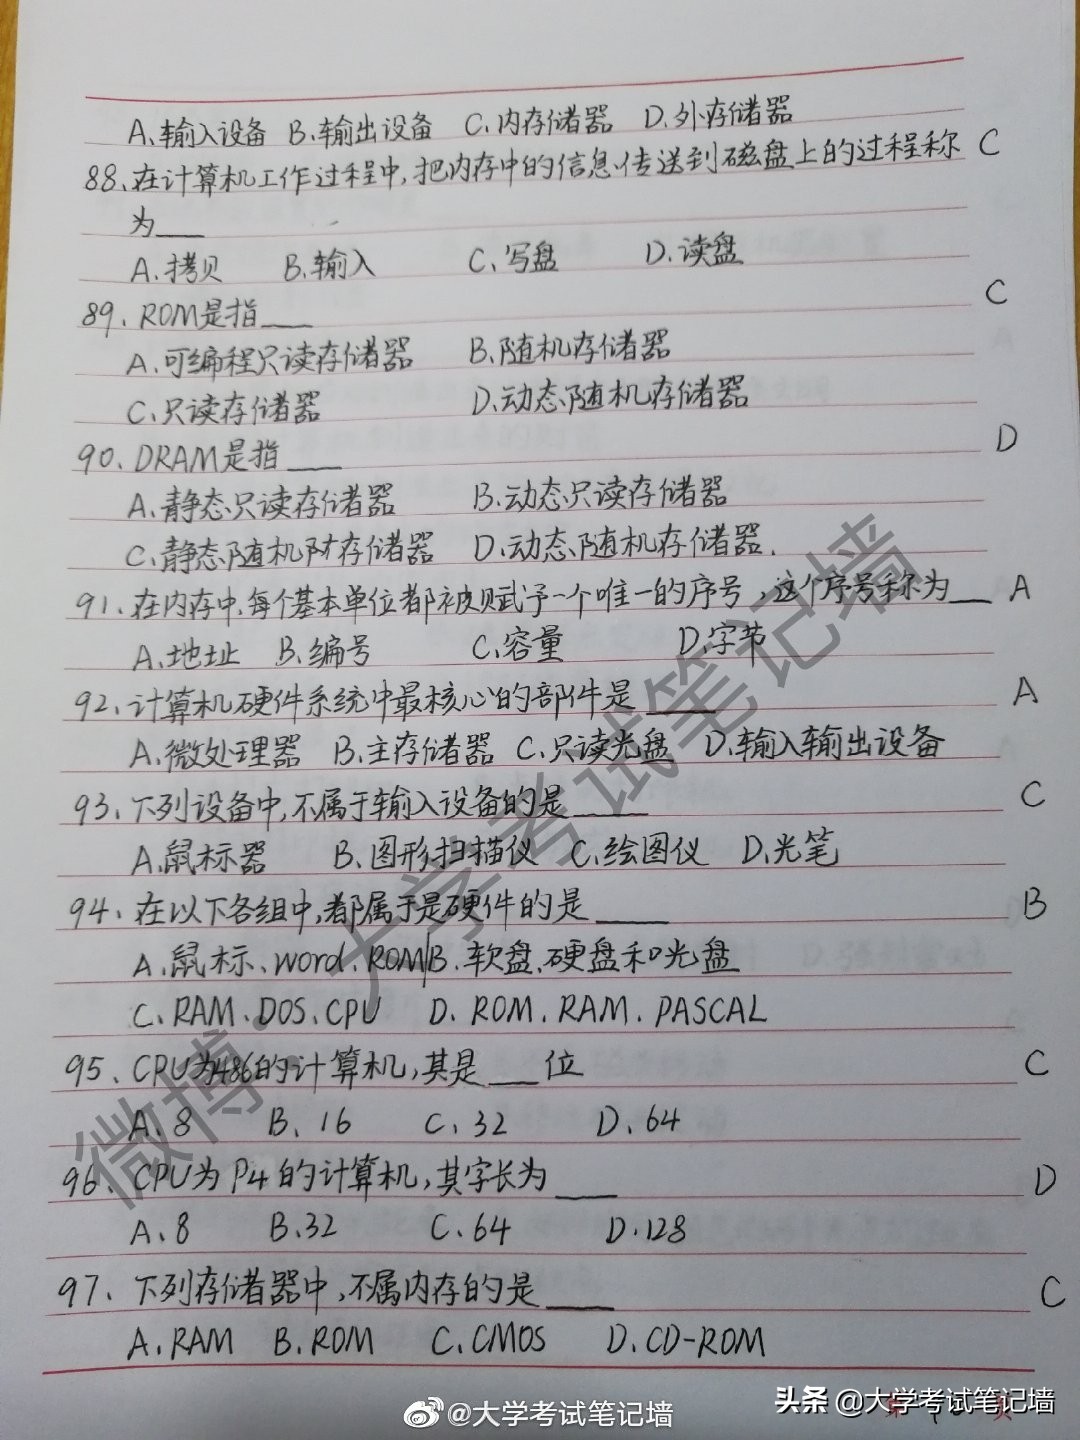 A、输入设备 B、输出设备 C、内存储器 D、外存储器
88、在计算机工作过程中,把内存中的信息传送到磁盘上的过程称 C
为___
A、拷贝 B、输入 C、写盘 D、读盘
89、ROM是指___ C
A、可编程只读存储器 B、随机存储器
C、只读存储器 D、动态随机存储器
90、DRAM是指___ D
A、静态只读存储器 B、动态只读存储器
C、静态随机存储器 D、动态随机存储器.
91、在内存中,每个基本单位都被赋予一个唯一的序号,这个序号称为___ A
A、地址 B、编号 C、容量 D、字节
92、计算机硬件系统中最核心的部件是___ A
A、微处理器 B、主存储器 C、只读光盘 D、输入输出设备
93、下列设备中,不属于输入设备的是___ C
A、鼠标器 B、图形扫描仪 C、绘图仪 D、光笔
94、在以下各组中,都属于是硬件的是___ B
A、鼠标、word、ROM B、软盘、硬盘和光盘
C、RAM、DOS、CPU D、ROM、RAM、PASCAL
95、CPU为486的计算机,其是___位 C
A、8 B、16 C、32 D、64
96、CPU为P4的计算机,其字长为___ D
A、8 B、32 C、64 D、128
97、下列存储器中,不属内存的是___ C
A、RAM B、ROM C、CMOS D、CD-ROM
微博:大学考试笔记墙
@大学考试笔记墙
头条 @大学考试笔记墙
第 页